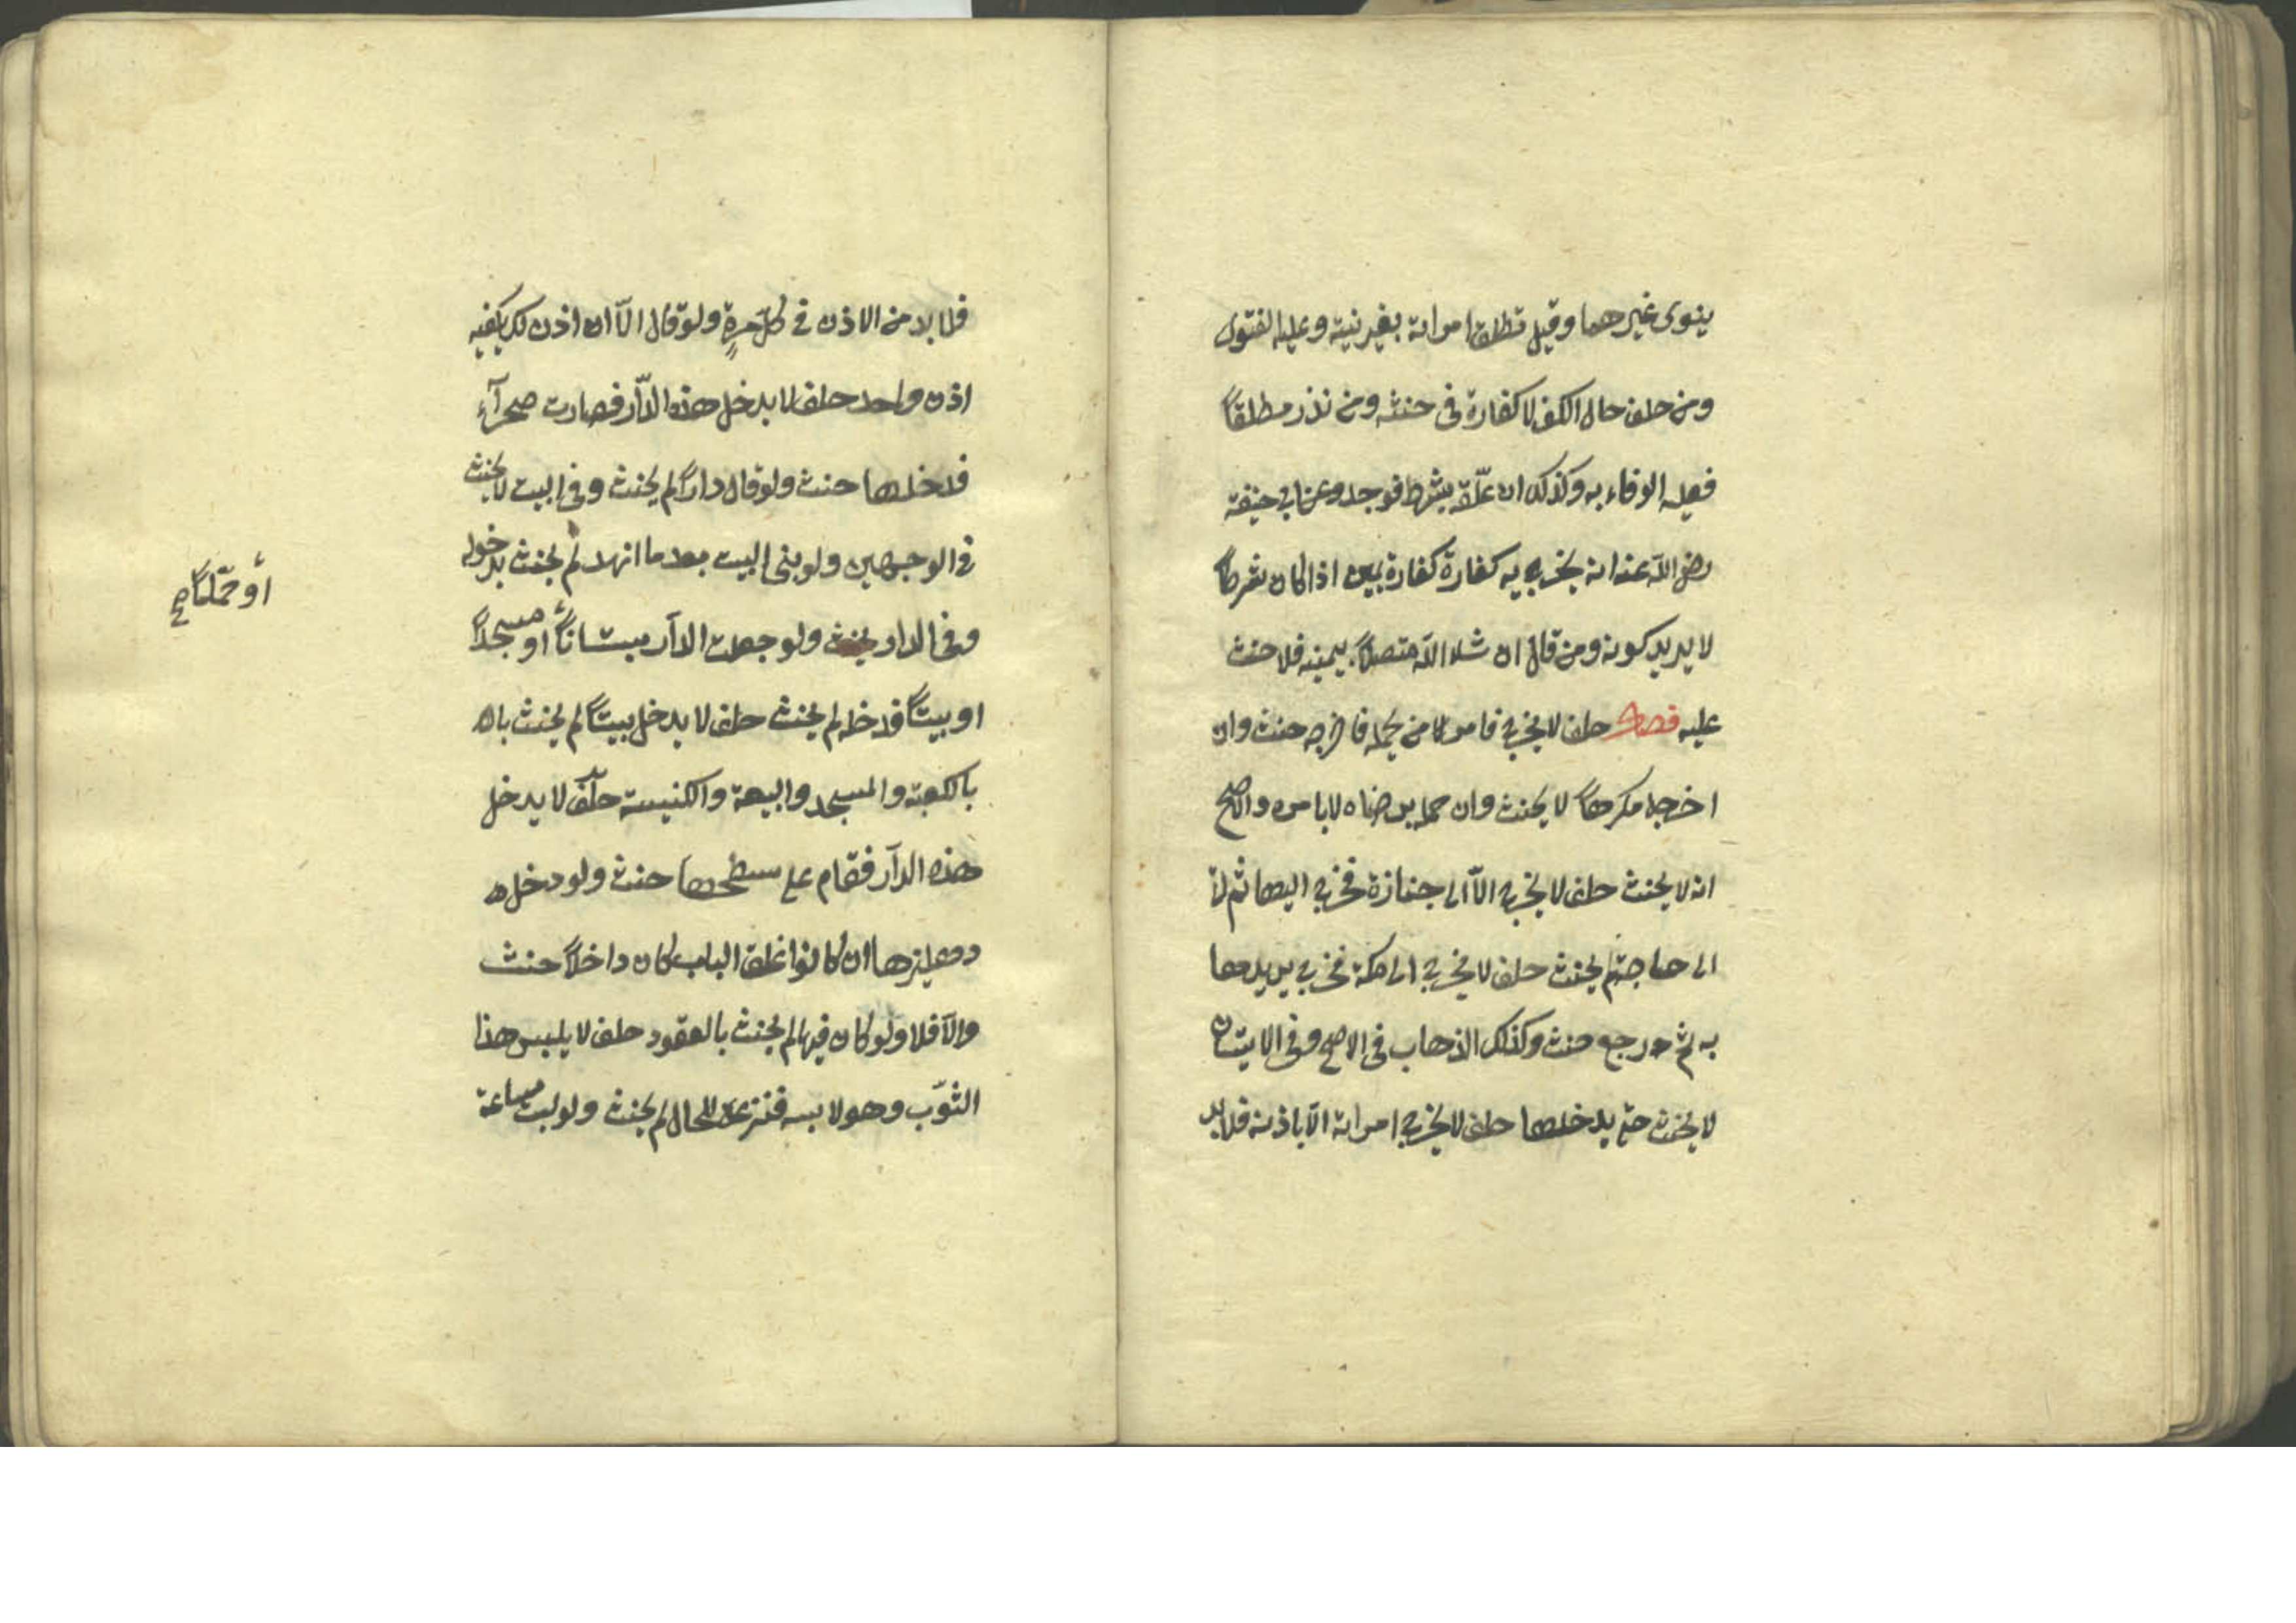 ينوى غيرهما وقيل تطلق امراته بغير نية وعليه الفتوى
ومن حلف حال الكفر لا كفارة فى حنثه ومن نذر مطلقاً
فعليه الوفاء به وكذلك ان علّقه بشرط فوجد وعن ابي حنيفة
رضي اللّه عنه انه يخرجيه كفارة كفارة يمين اذا كان شرطاً
لا يريد كونه ومن قال ان شاء اللّه متصلاً بيمينه فلا حنث
عليه فصل حلف لا يخرج فامر من يحمله فاخرجه حنث وان
اخرجه مكرهاً لا يحنث وان حمله برضاه لا بامره والاصح
انه لا يحنث حلف لا يخرج الاّ الى جنازة فخرج اليها ثم اتى
الى حاجة لم يحنث حلف لا يخرج الى مكة فخرج يريدها
به ثم رجع حنث وكذلك الذهاب فى الاصح وفى الاتيان
لا يحنث حتى يدخلها حلف لا يخرج امراته الاّ باذنه فلا بد
فلا بد من الاذن فى كلّ مرةٍ ولو قال الاّ ان اذن لك يكفيه
اذن واحد حلف لا يدخل هذه الدّار فصارت صحرآء
فدخلها حنث ولو قال داراً لم يحنث وفى البيت لا يحنث
فى الوجهين ولو بنى البيت بعد ما انهدم لم يحنث بدخوله
وفى الدار يحنث ولو جعلت الدآر بستاناً او مسجداً
أو حمّاماً صح
او بيتاً فدخله لم يحنث حلف لا يدخل بيتاً لم يحنث بال
بالكعبة والمسجد والبيعة والكنيسة حلف لا يدخل
هذه الدآر فقام على سطحها حنث ولو دخل
دهليزها ان كان لو اغلق الباب كان داخلاً حنث
والاّ فلا ولو كان فيها لم يحنث بالعقود حلف لا يلبس هذا
الثوّب وهو لابسه فنزعه للحال لم يحنث ولو لبث ساعة